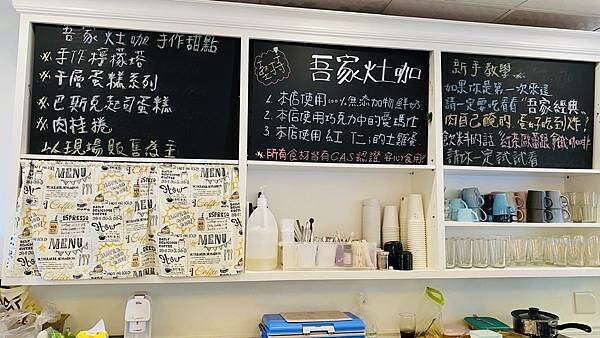 吾家灶咖 手作甜點
※手作檸檬塔
※千層蛋糕系列
※巴斯克起司蛋糕
※肉桂捲
以現場販售為主
吾家灶咖
1. 本店使用100%無添加物鮮奶
2. 本店使用巧克力中的愛瑪仕
3. 本店使用紅 的土雞蛋
※所有食材皆有CAS認證 安心食用!
新手教學
如果你是第一次來這
請一定要吃看看"吾家經典"
肉自己醃的 長好吃到炸!
飲料的話 紅茶歐蕾跟
請你一定試試看
MENU
Coffee
ESPRESSO
MENU
ESPRESSO
MENU
Coffee